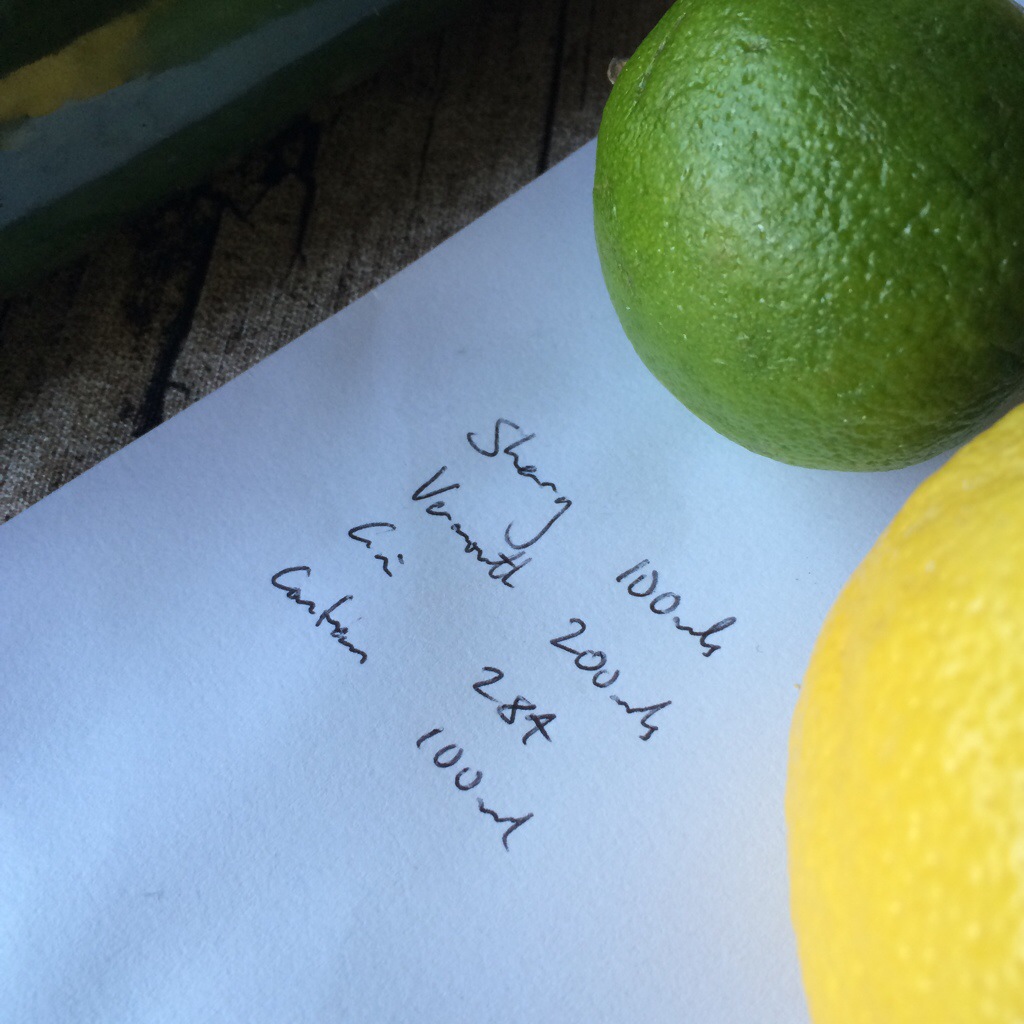 Sherry 100mls
Vermouth 200mls
Gin 284
Contrian 100ml